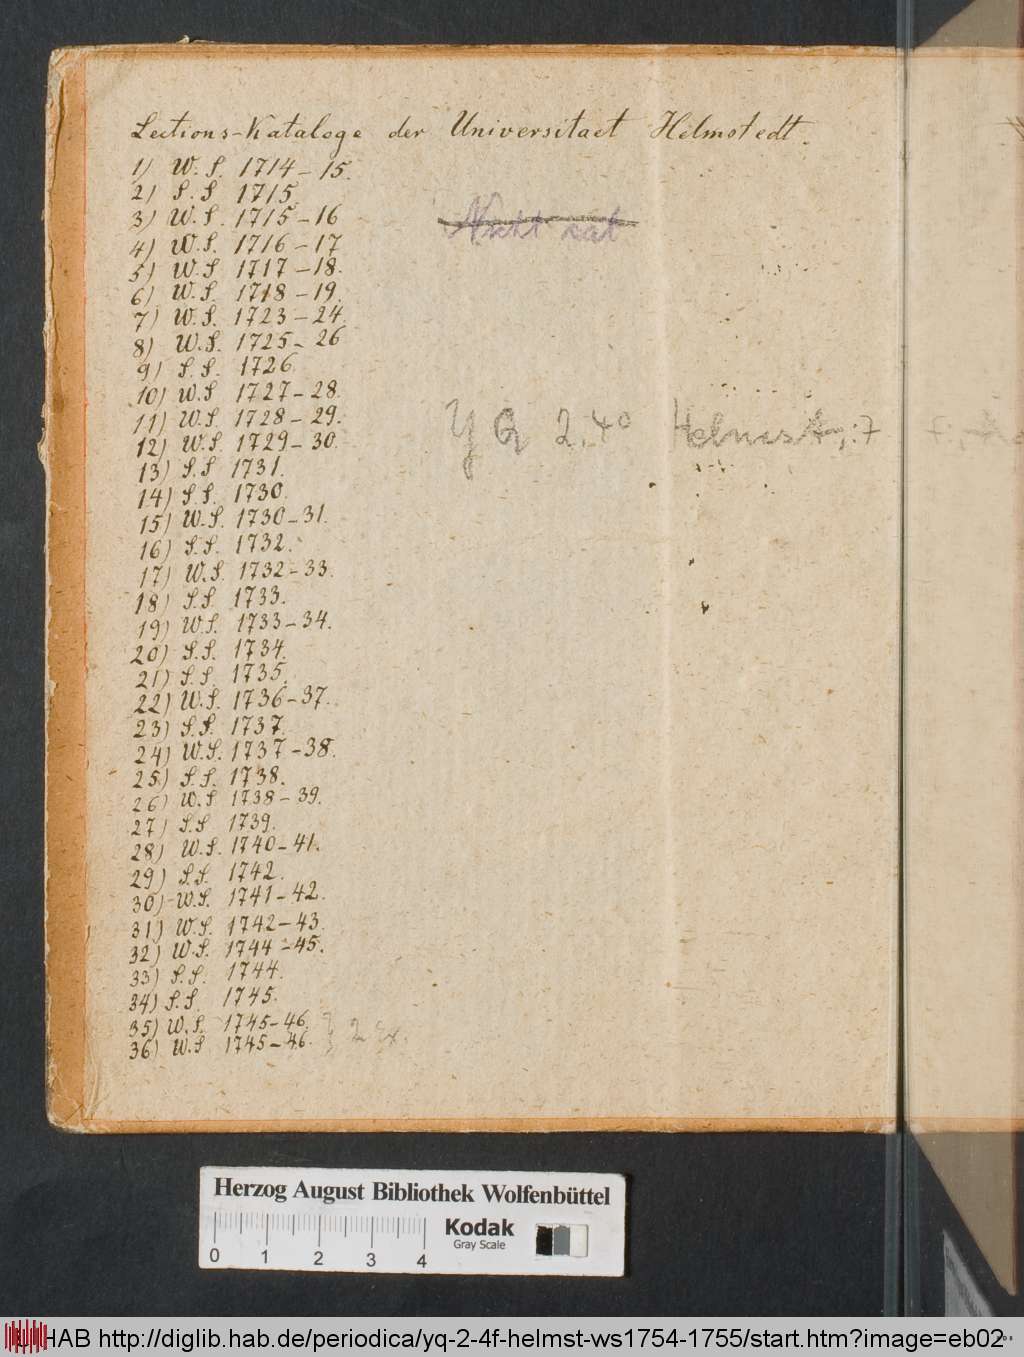 Lections-Kataloge der Universitaet Helmstedt.
1) W. S. 1714-15.
2) S. S 1715.
3) W. S. 1715-16
4) W. S. 1716-17
5) W. S 1717-18.
6) W. S. 1718-19.
7) W. S. 1723-24.
8) W. S. 1725-26
9) S. S. 1726.
10) W. S 1727-28.
11) W. S. 1728-29.
12) W. S. 1729-30.
13) S. S 1731.
14) S. S. 1730.
15) W. S. 1730-31.
16) S. S. 1732.
17) W. S. 1732-33.
18) S. S. 1733.
19) W. S. 1733-34.
20) S. S. 1734.
21) S. S. 1735.
22) W. S. 1736-37.
23) S. S. 1737.
24) W. S. 1737-38.
25) S. S. 1738.
26) W. S 1738-39.
27) S. S 1739.
28) W. S. 1740-41.
29) S. S. 1742.
30) W. S. 1741-42.
31) W. S. 1742-43.
32) W. S. 1744-45.
33) S. S. 1744.
34) S. S. 1745.
35) W. S. 1745-46.
36) W. S 1745-46. } 2 Ex.
Nicht kat
YQ 2.4° Helmst
Herzog August Bibliothek Wolfenbüttel
0 1 2 3 4
Kodak
Gray Scale
HAB http://diglib.hab.de/periodica/yq-2-4f-helmst-ws1754-1755/start.htm?image=eb02